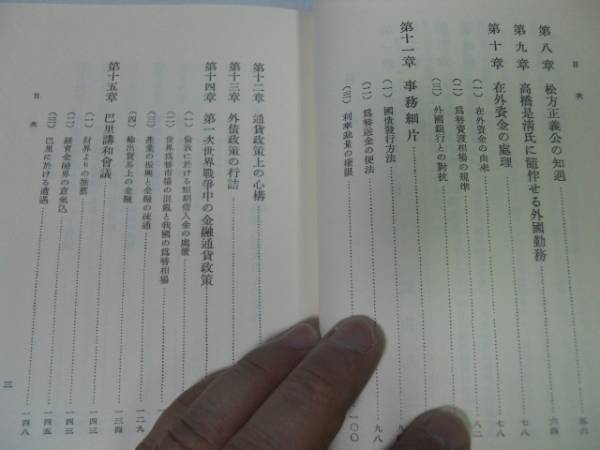 目次
第八章 松方正義公の知遇 五六
第九章 高橋是淸氏に隨伴せる外國勤務 六四
第十章 在外資金の處理 七八
(一) 在外資金の由來 七八
(二) 爲替賣渡相場の規準 八二
(三) 外國銀行との對抗
第十一章 事務細片
(一) 國債發行方法
(二) 爲替送金の便法 九八
(三) 利率裁量の權限 一〇〇
第十二章 通貨政策上の心構
第十三章 外債政策の行詰
第十四章 第一次世界戰爭中の金融通貨政策
(一) 倫敦に於ける短期借入金の處置
(二) 世界爲替市場の混亂と我國の爲替相場
(三) 產業の振興と金融の疏通 一二九
(四) 輸出貿易上の金融 一三四
第十五章 巴里講和會議
(一) 財界よりの推薦 一四一
(二) 經濟金融界の意氣込 一四三
(三) 巴里に於ける遭遇 一四八
目次
三